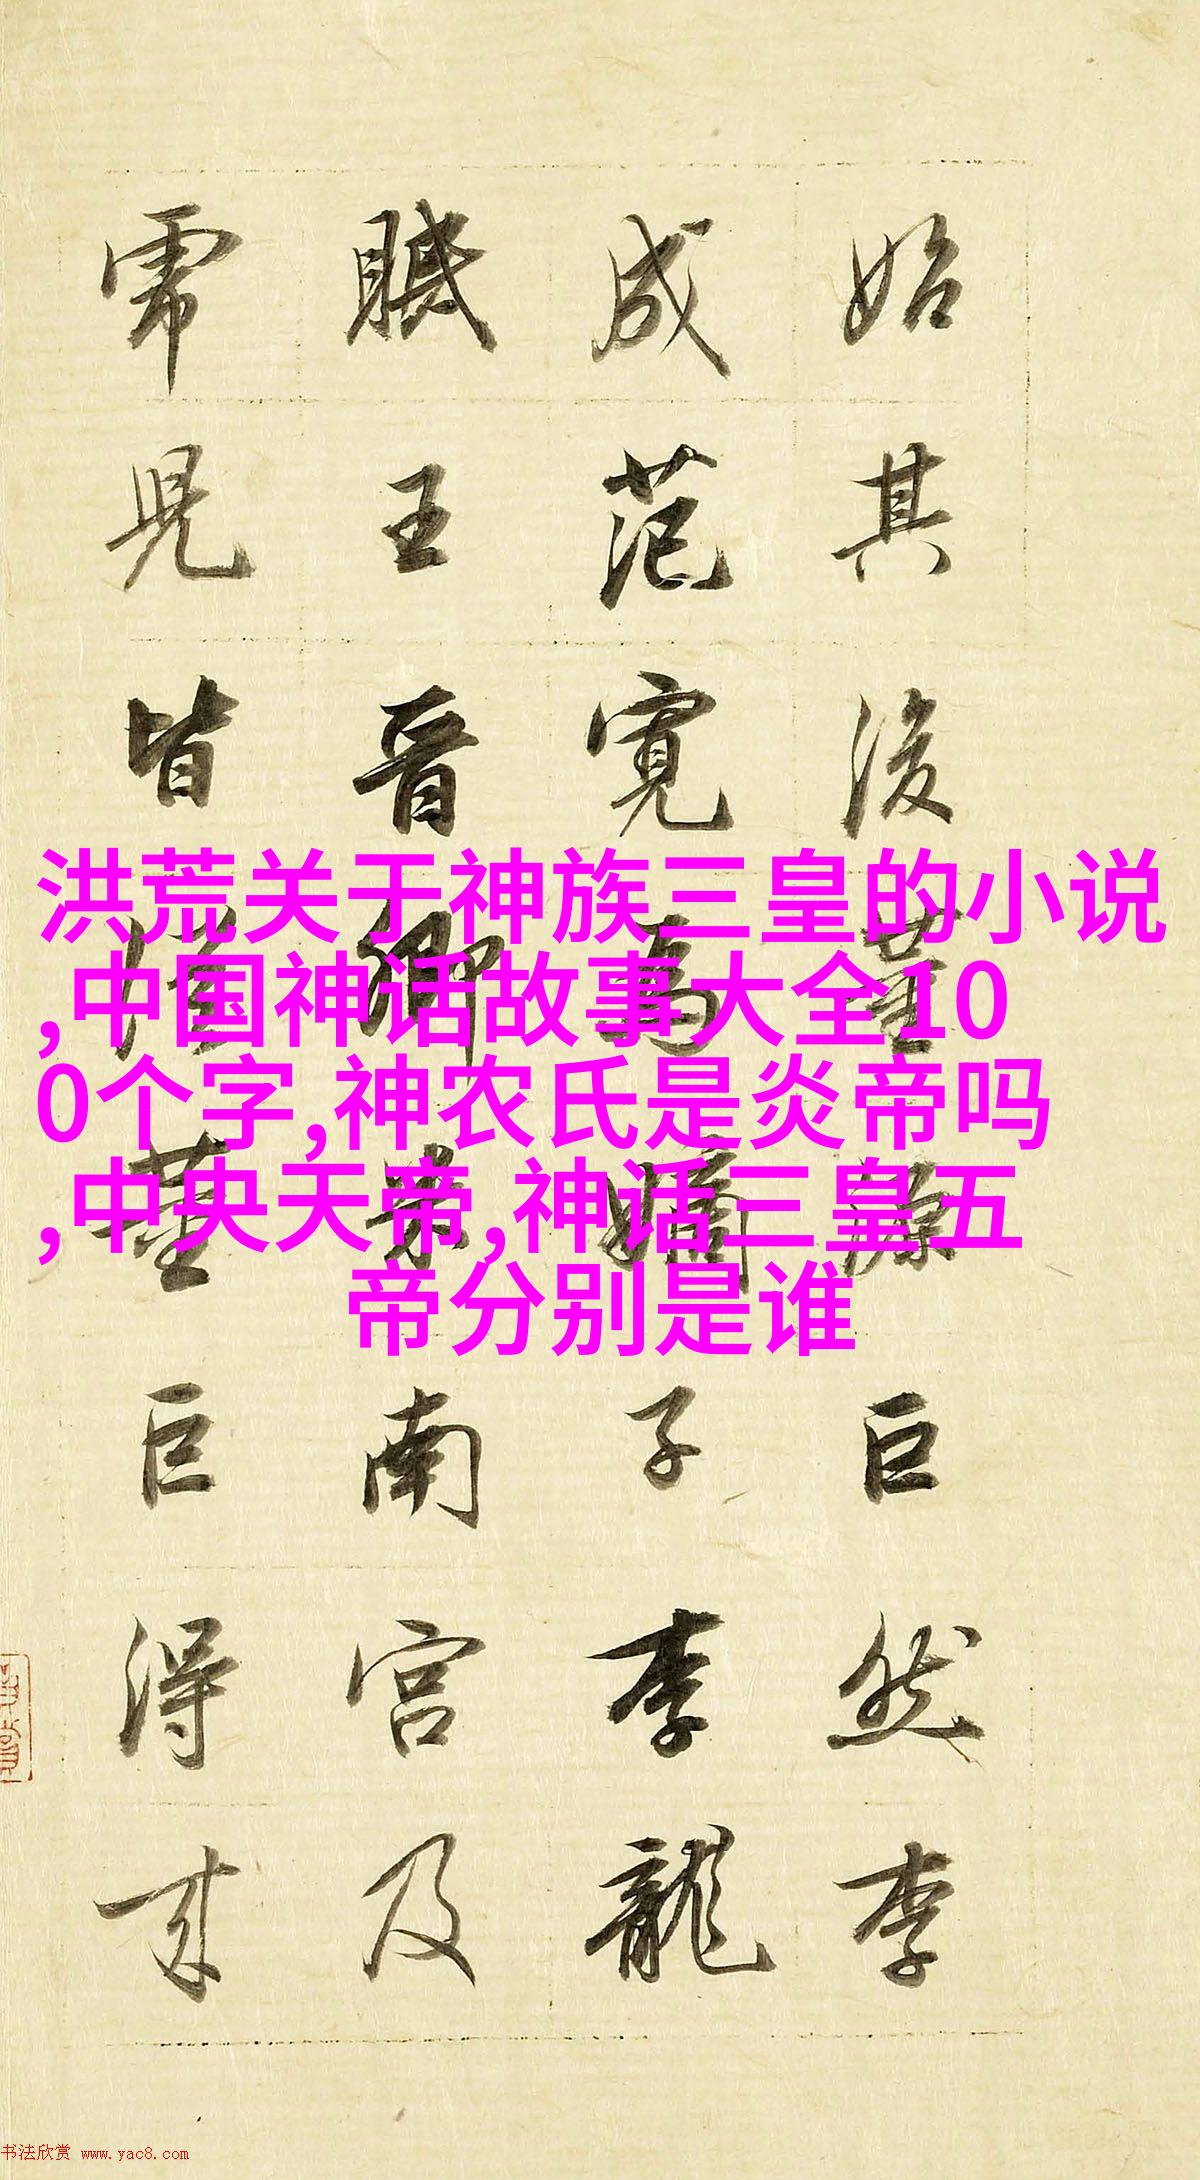 始其後董源巨然李
成范寬為嫡子李龍
眠王晋卿米南宫及
虎兒皆從董巨得来
洪荒关于神族三皇的小说
,中国神话故事大全10
0个字,神农氏是炎帝吗
,中央天帝,神话三皇五
帝分别是谁
书法欣赏 www.yac8.com